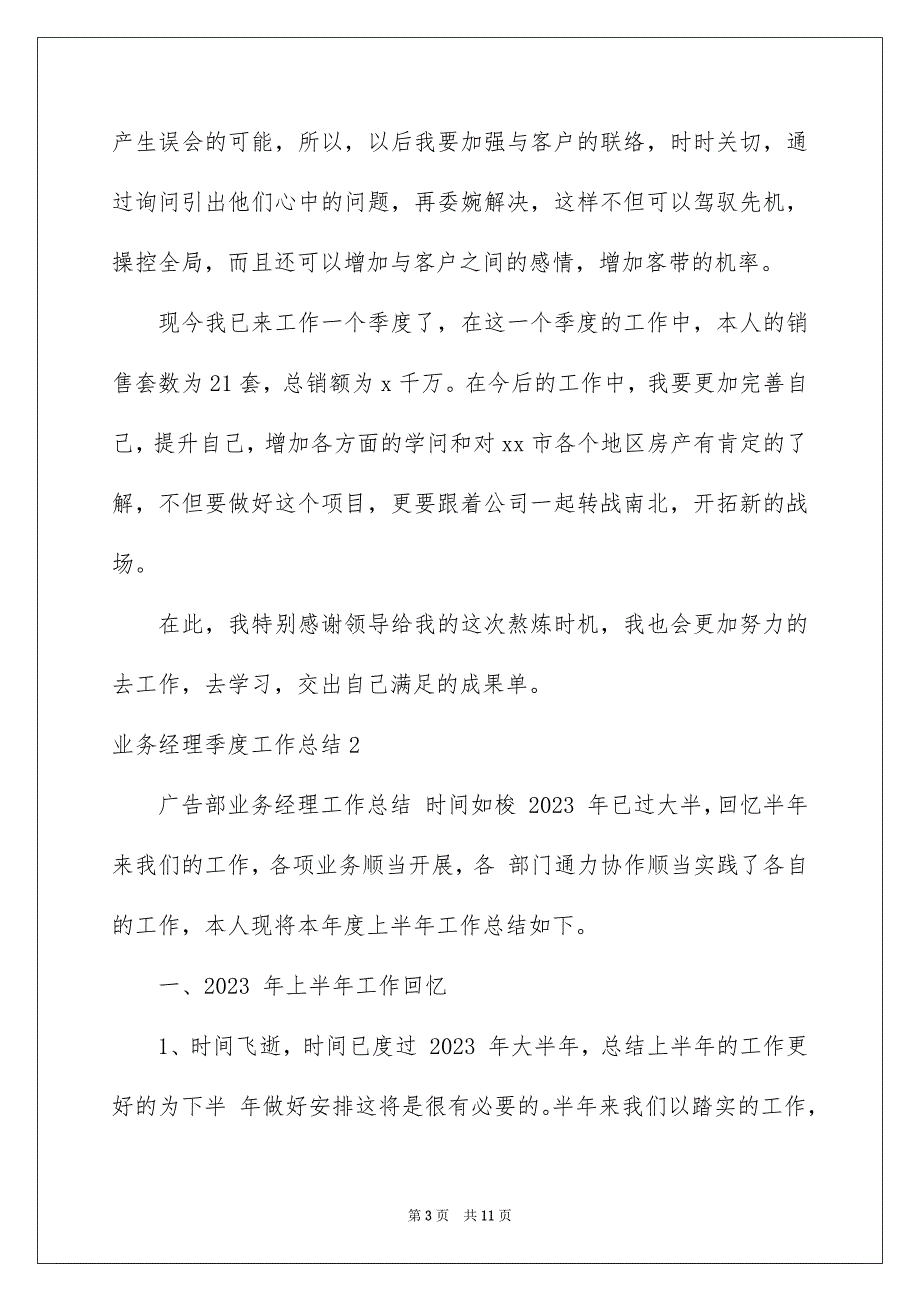 产生误会的可能，所以，以后我要加强与客户的联络，时时关切，通
过询问引出他们心中的问题，再委婉解决，这样不但可以驾驭先机，
操控全局，而且还可以增加与客户之间的感情，增加客带的机率。
现今我已来工作一个季度了，在这一个季度的工作中，本人的销
售套数为 21 套，总销额为 x 千万。在今后的工作中，我要更加完善自
己，提升自己，增加各方面的学问和对 xx 市各个地区房产有肯定的了
解，不但要做好这个项目，更要跟着公司一起转战南北，开拓新的战
场。
在此，我特别感谢领导给我的这次熬炼时机，我也会更加努力的
去工作，去学习，交出自己满足的成果单。
业务经理季度工作总结 2
广告部业务经理工作总结 时间如梭 2023 年已过大半，回忆半年
来我们的工作，各项业务顺当开展，各 部门通力协作顺当实践了各自
的工作，本人现将本年度上半年工作总结如下。
一、2023 年上半年工作回忆
1、时间飞逝，时间已度过 2023 年大半年，总结上半年的工作更
好的为下半 年做好安排这将是很有必要的。半年来我们以踏实的工作，
第 3 页 共 11 页